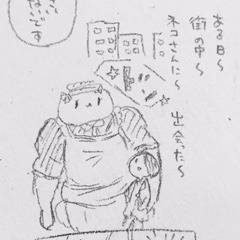 ある日〜
街の中〜
ネコさんに〜
出会った〜
ないです